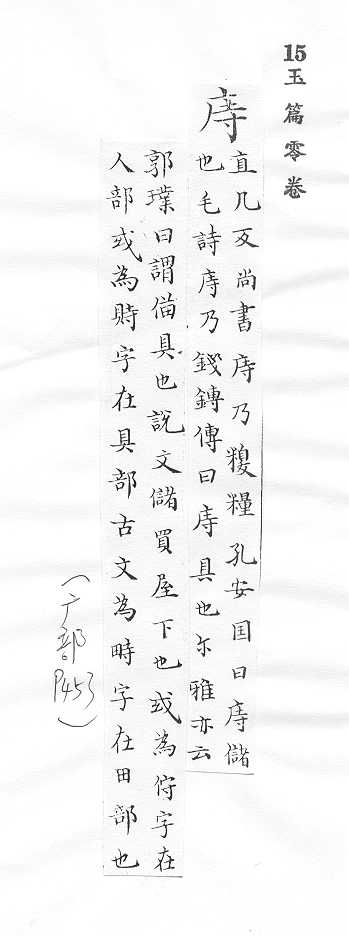 15玉篇零卷
庤
直几反尚書庤乃糗糧孔安国曰庤儲
也毛詩庤乃錢鎛傳曰庤具也尓雅亦云
郭璞曰謂俻具也說文儲買屋下也或為偫字在
人部或為䝰字在具部古文為畤字在田部也
(广部P453)